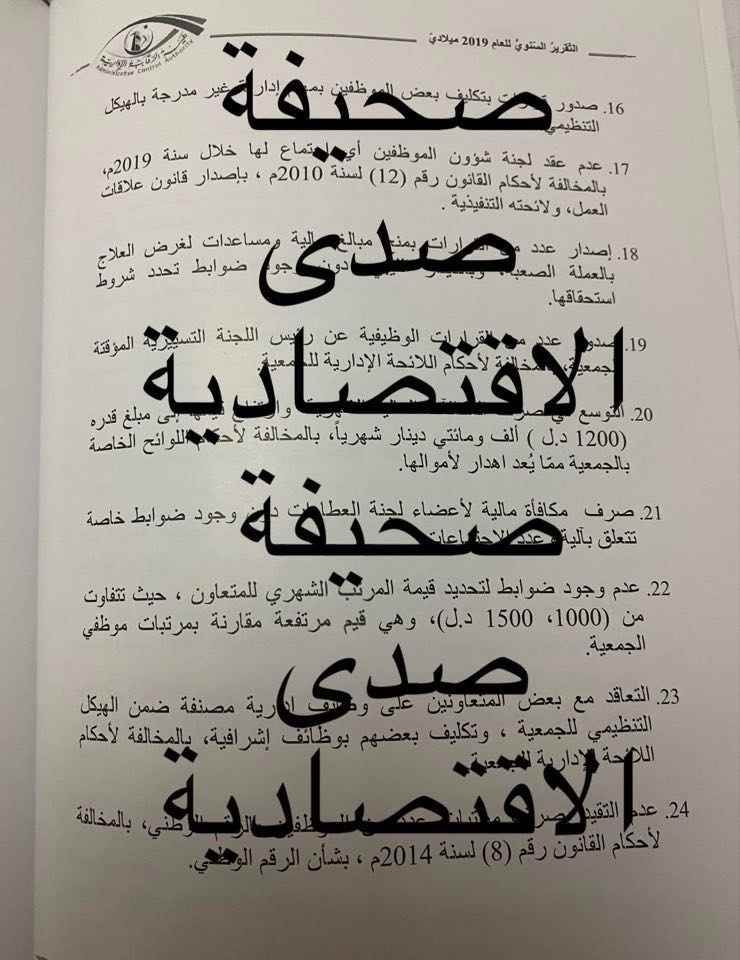 التقرير السنوي للعام 2019 ميلادي
هيئة الرقابة الإدارية
Administrative Control Authority
16. صدور قرارات بتكليف بعض الموظفين بمهام إدارية غير مدرجة بالهيكل
التنظيمي.
17. عدم عقد لجنة شؤون الموظفين أي اجتماع لها خلال سنة 2019م،
بالمخالفة لأحكام القانون رقم (12) لسنة 2010م ، بإصدار قانون علاقات
العمل، ولائحته التنفيذية .
18. إصدار عدد من القرارات بمنح مبالغ مالية ومساعدات لغرض العلاج
بالعملة الصعبة، دون وجود ضوابط تحدد شروط
استحقاقها.
19. صدور عدد من القرارات الوظيفية عن رئيس اللجنة التسييرية المؤقتة
للجمعية، بالمخالفة لأحكام اللائحة الإدارية للجمعية.
20. التوسع في صرف إلى مبلغ قدره
(1200 د.ل ) ألف ومائتي دينار شهرياً، بالمخالفة لأحكام اللوائح الخاصة
بالجمعية ممّا يُعد اهدار لأموالها.
21. صرف مكافأة مالية لأعضاء لجنة العطاءات دون وجود ضوابط خاصة
تتعلق بآلية وعدد الاجتماعات.
22. عدم وجود ضوابط لتحديد قيمة المرتب الشهري للمتعاون ، حيث تتفاوت
من (1000، 1500 د.ل)، وهي قيم مرتفعة مقارنة بمرتبات موظفي
الجمعية.
23. التعاقد مع بعض المتعاونين على وظائف إدارية مصنفة ضمن الهيكل
التنظيمي للجمعية ، وتكليف بعضهم بوظائف إشرافية، بالمخالفة لأحكام
اللائحة الإدارية للجمعية.
24. عدم التقيد بصرف مرتبات عدد من الموظفين بالرقم الوطني، بالمخالفة
لأحكام القانون رقم (8) لسنة 2014م ، بشأن الرقم الوطني.
صحيفة
صدى
الاقتصادية
صحيفة
صدى
الاقتصادية